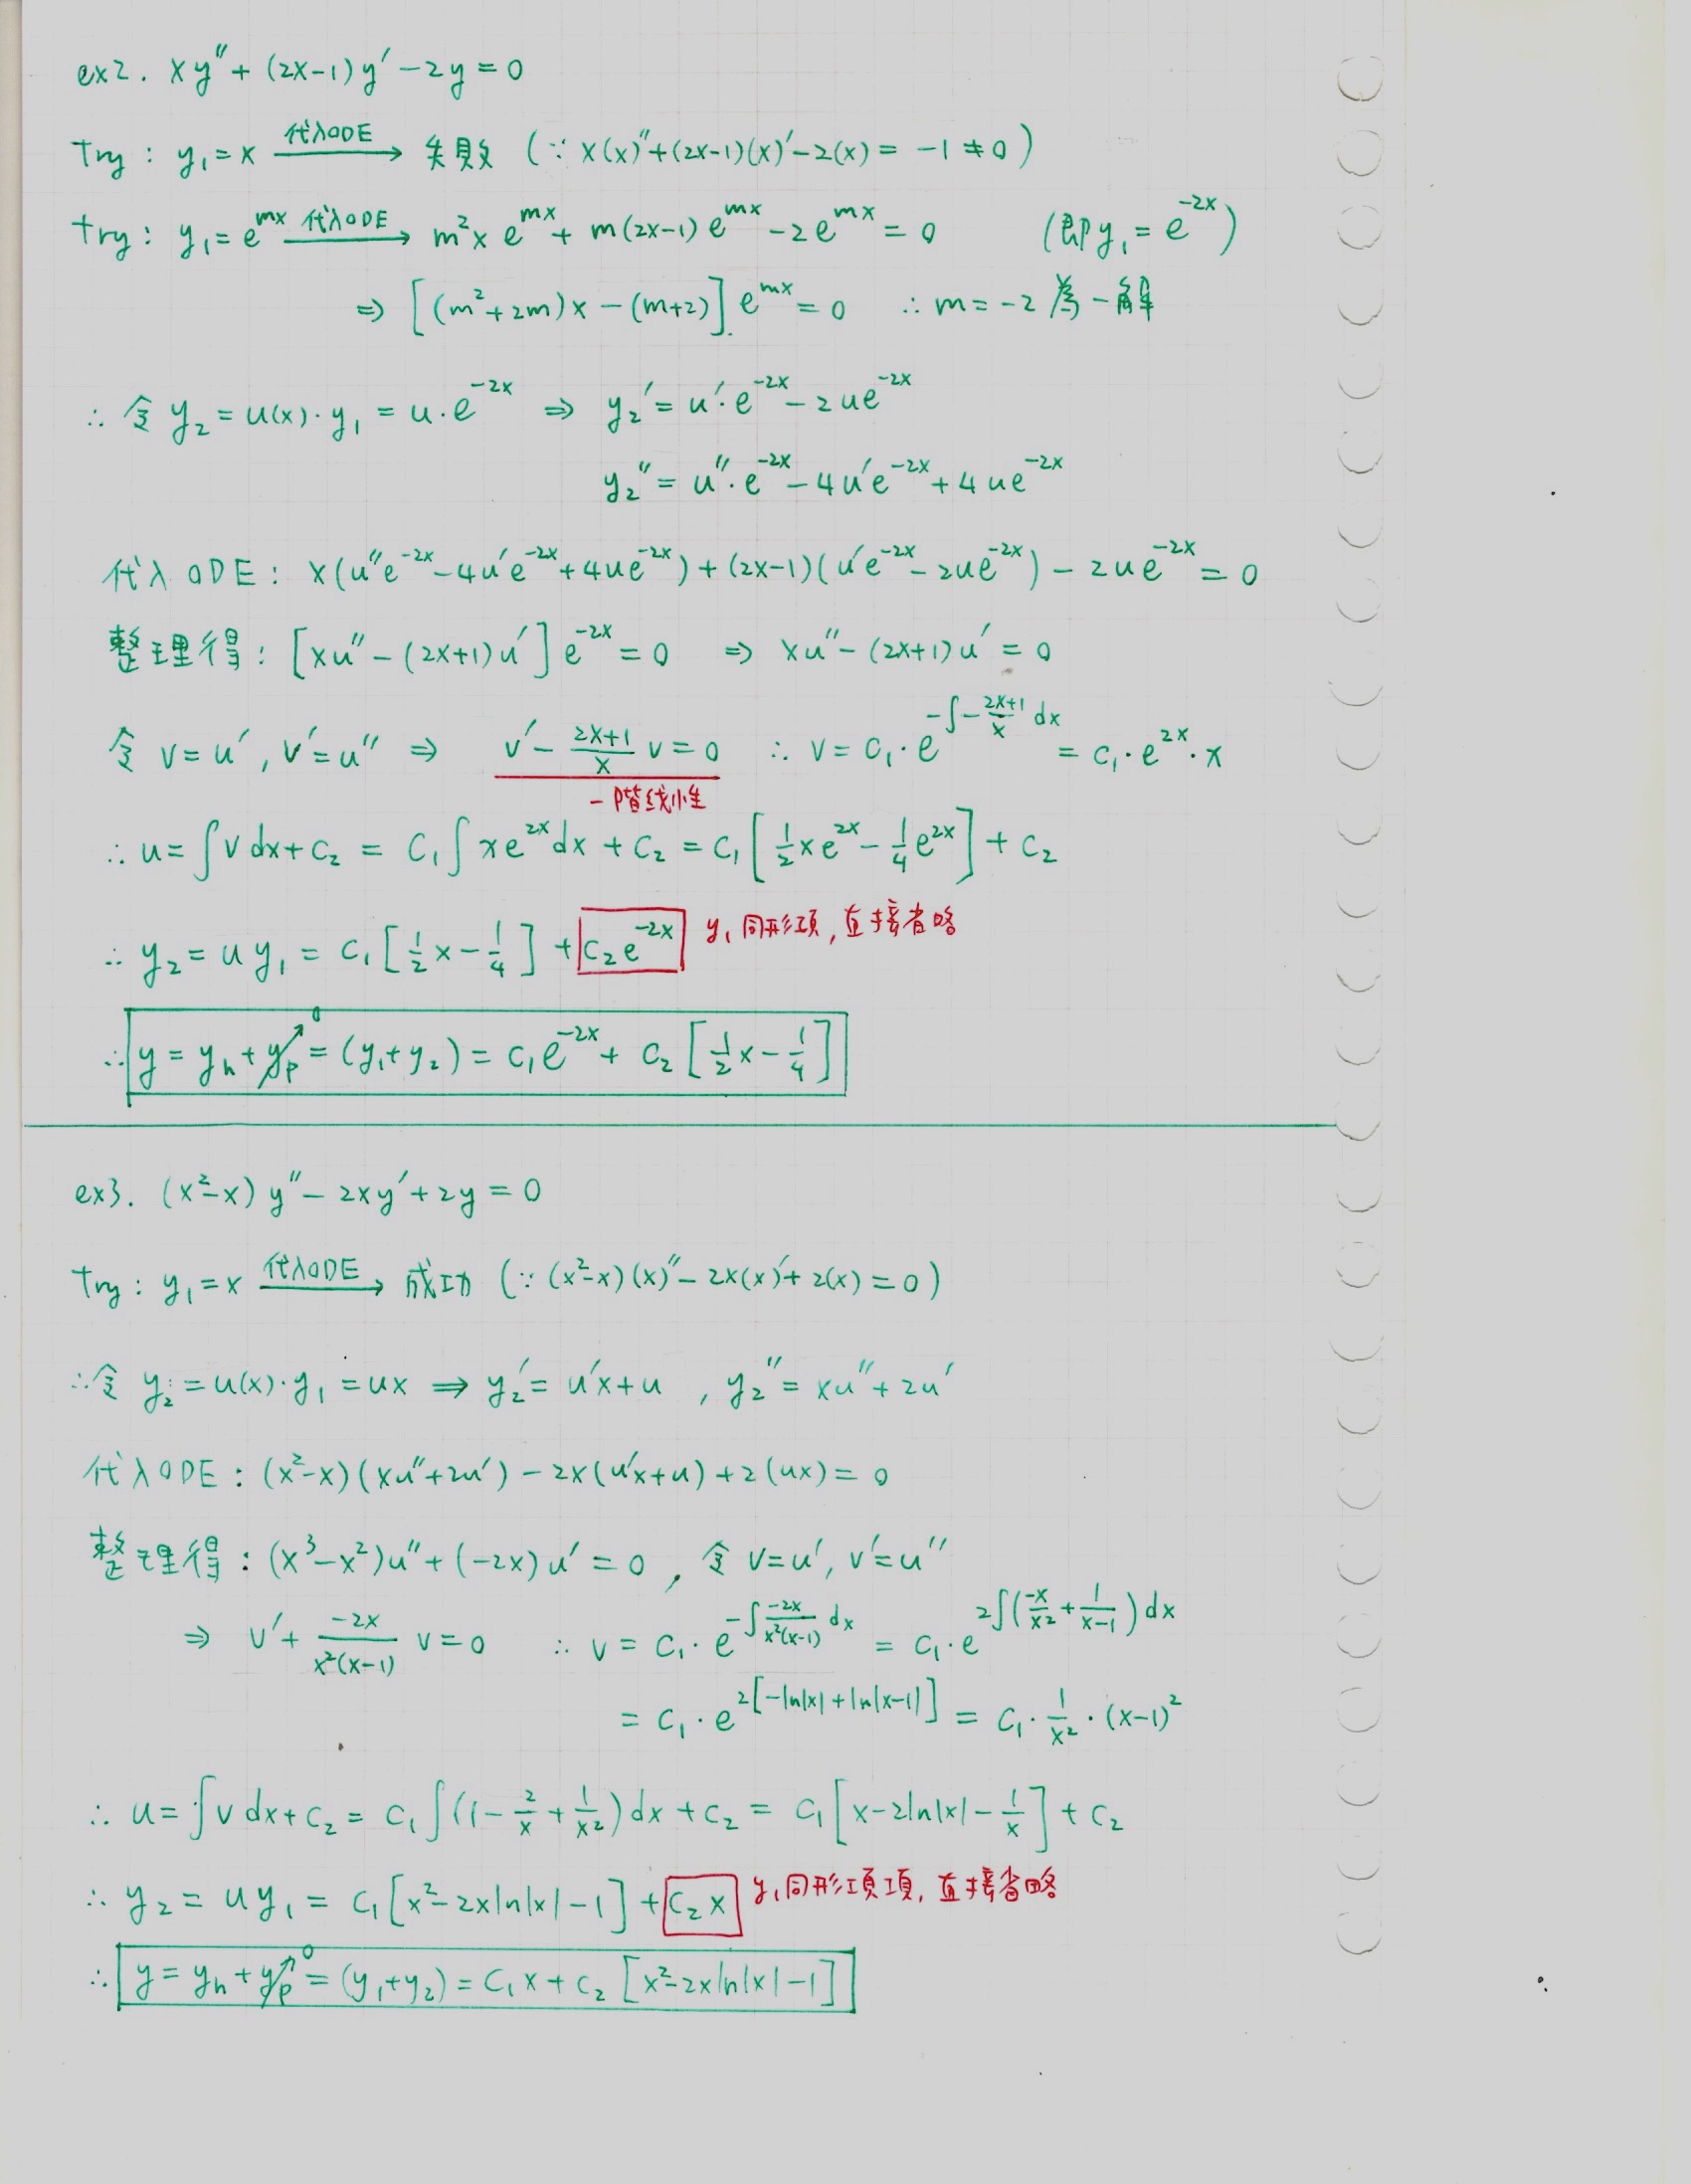 ex2. xy″ + (2x-1)y′ - 2y = 0
Try : y₁ = x 代入ODE→ 失敗 (∵ x(x)″+(2x-1)(x)′-2(x) = -1 ≠ 0)
try : y₁ = e^{mx} 代入ODE→ m²x e^{mx} + m(2x-1) e^{mx} - 2e^{mx} = 0 (即 y₁ = e^{-2x})
⇒ [(m²+2m)x - (m+2)] e^{mx} = 0 ∴ m = -2 為一解
∴ 令 y₂ = u(x)·y₁ = u·e^{-2x} ⇒ y₂′ = u′·e^{-2x} - 2ue^{-2x}
y₂″ = u″·e^{-2x} - 4u′e^{-2x} + 4ue^{-2x}
代入 ODE : x(u″e^{-2x} - 4u′e^{-2x} + 4ue^{-2x}) + (2x-1)(u′e^{-2x} - 2ue^{-2x}) - 2ue^{-2x} = 0
整理得 : [xu″ - (2x+1)u′] e^{-2x} = 0 ⇒ xu″ - (2x+1)u′ = 0
令 v = u′, v′ = u″ ⇒ v′ - \frac{2x+1}{x} v = 0 ∴ v = c₁·e^{-∫-\frac{2x+1}{x} dx} = c₁·e^{2x}·x
一階线性
∴ u = ∫v dx + c₂ = c₁∫xe^{2x}dx + c₂ = c₁[\frac{1}{2}xe^{2x} - \frac{1}{4}e^{2x}] + c₂
∴ y₂ = u y₁ = c₁[\frac{1}{2}x - \frac{1}{4}] + c₂e^{-2x} y₁同形项, 直接省略
∴ y = y_h + y_p⁰ = (y₁+y₂) = c₁e^{-2x} + c₂[\frac{1}{2}x - \frac{1}{4}]
ex3. (x²-x)y″ - 2xy′ + 2y = 0
Try : y₁ = x 代入ODE→ 成功 (∵ (x²-x)(x)″ - 2x(x)′ + 2(x) = 0)
∴令 y₂ = u(x)·y₁ = ux ⇒ y₂′ = u′x+u , y₂″ = xu″+2u′
代入ODE : (x²-x)(xu″+2u′) - 2x(u′x+u) + 2(ux) = 0
整理得 : (x³-x²)u″ + (-2x)u′ = 0 , 令 v=u′, v′=u″
⇒ v′ + \frac{-2x}{x²(x-1)} v = 0 ∴ v = c₁·e^{-∫\frac{-2x}{x²(x-1)} dx} = c₁·e^{2∫(\frac{-x}{x²}+\frac{1}{x-1})dx}
= c₁·e^{2[-ln|x|+ln|x-1|]} = c₁·\frac{1}{x²}·(x-1)²
∴ u = ∫v dx + c₂ = c₁∫(1 - \frac{2}{x} + \frac{1}{x²})dx + c₂ = c₁[x - 2ln|x| - \frac{1}{x}] + c₂
∴ y₂ = u y₁ = c₁[x² - 2xln|x| - 1] + c₂x y₁同形项項, 直接省略
∴ y = y_h + y_p⁰ = (y₁+y₂) = c₁x + c₂[x² - 2xln|x| - 1]